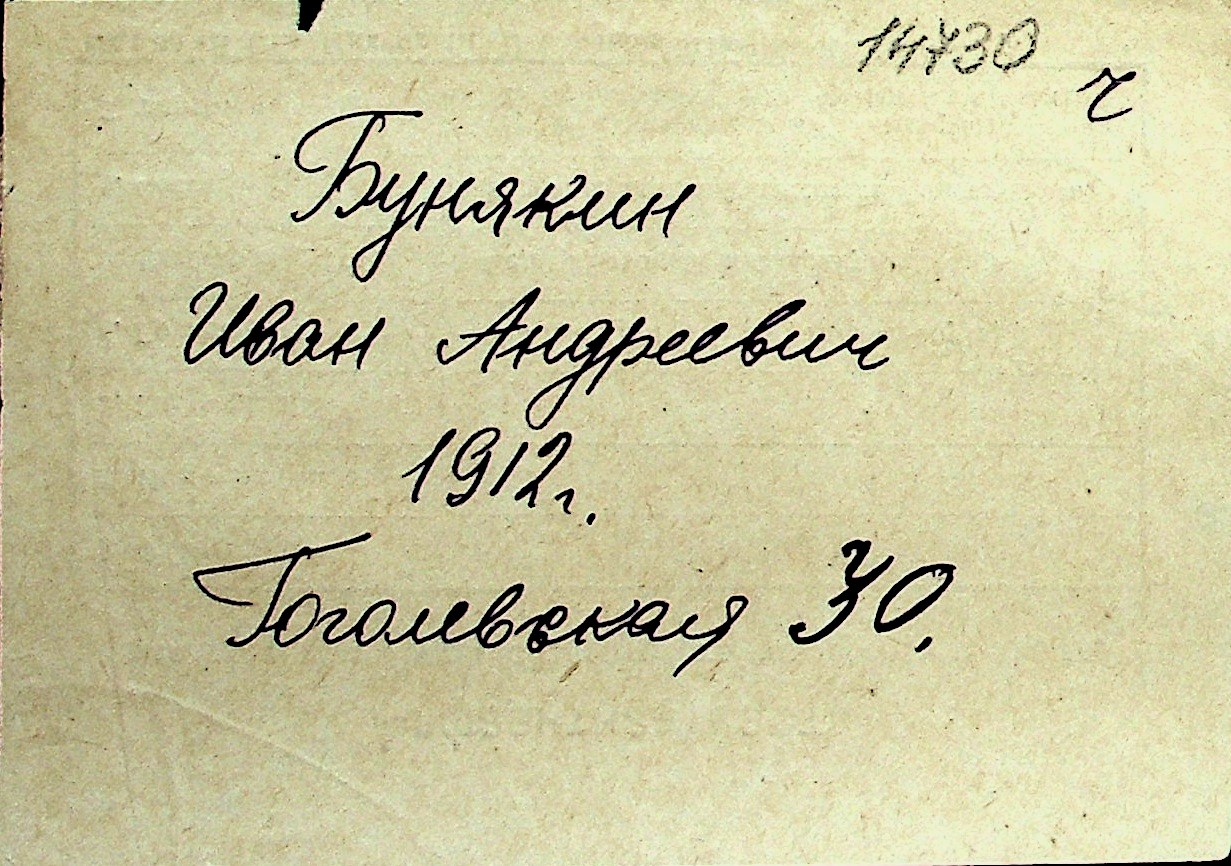 14730
ч
Бунякин
Иван Андреевич
1912г.
Гоголевская 30.